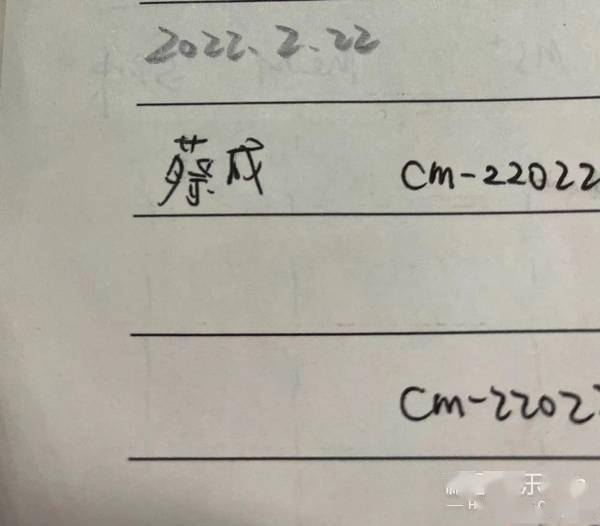 2022.2.22
蔡成 Cm-22022
Cm-2202
乐